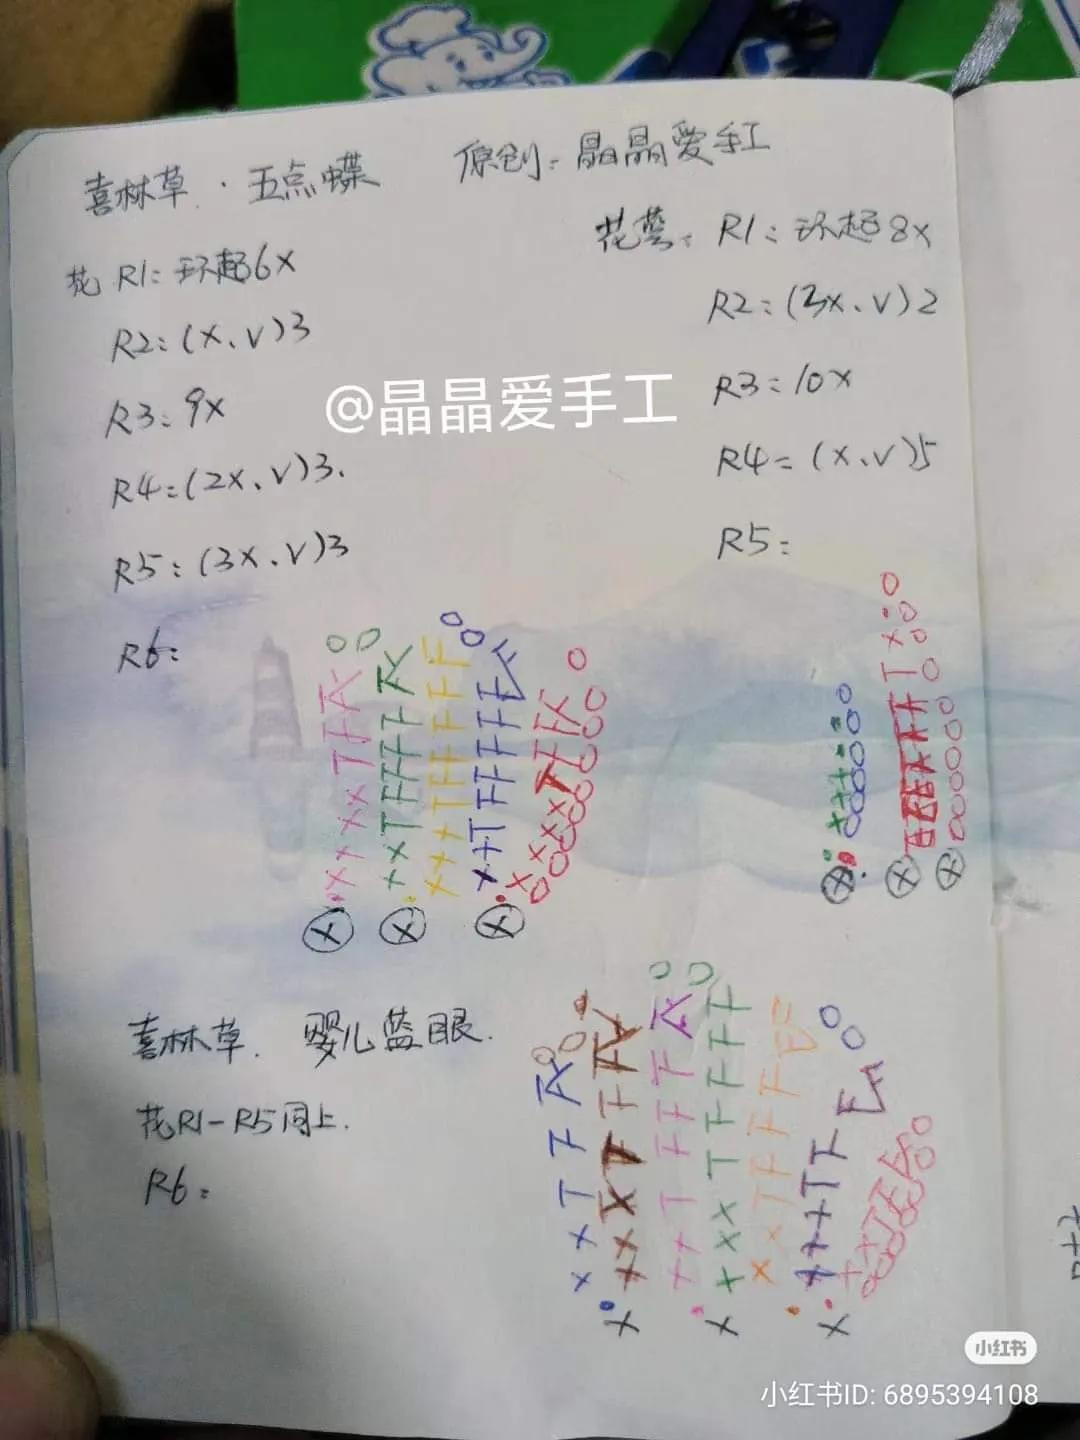 喜林草·五点蝶 原创:晶晶爱手工
花 R1:环起6X
R2:(X、V)3
R3:9X
R4:(2X、V)3.
R5:(3X、V)3
R6:
花萼: R1:环起8X
R2:(3X、V)2
R3:10X
R4=(X、V)5
R5:
@晶晶爱手工
喜林草. 婴儿蓝眼.
花R1-R5同上.
R6:
小红书
小红书ID: 6895394108